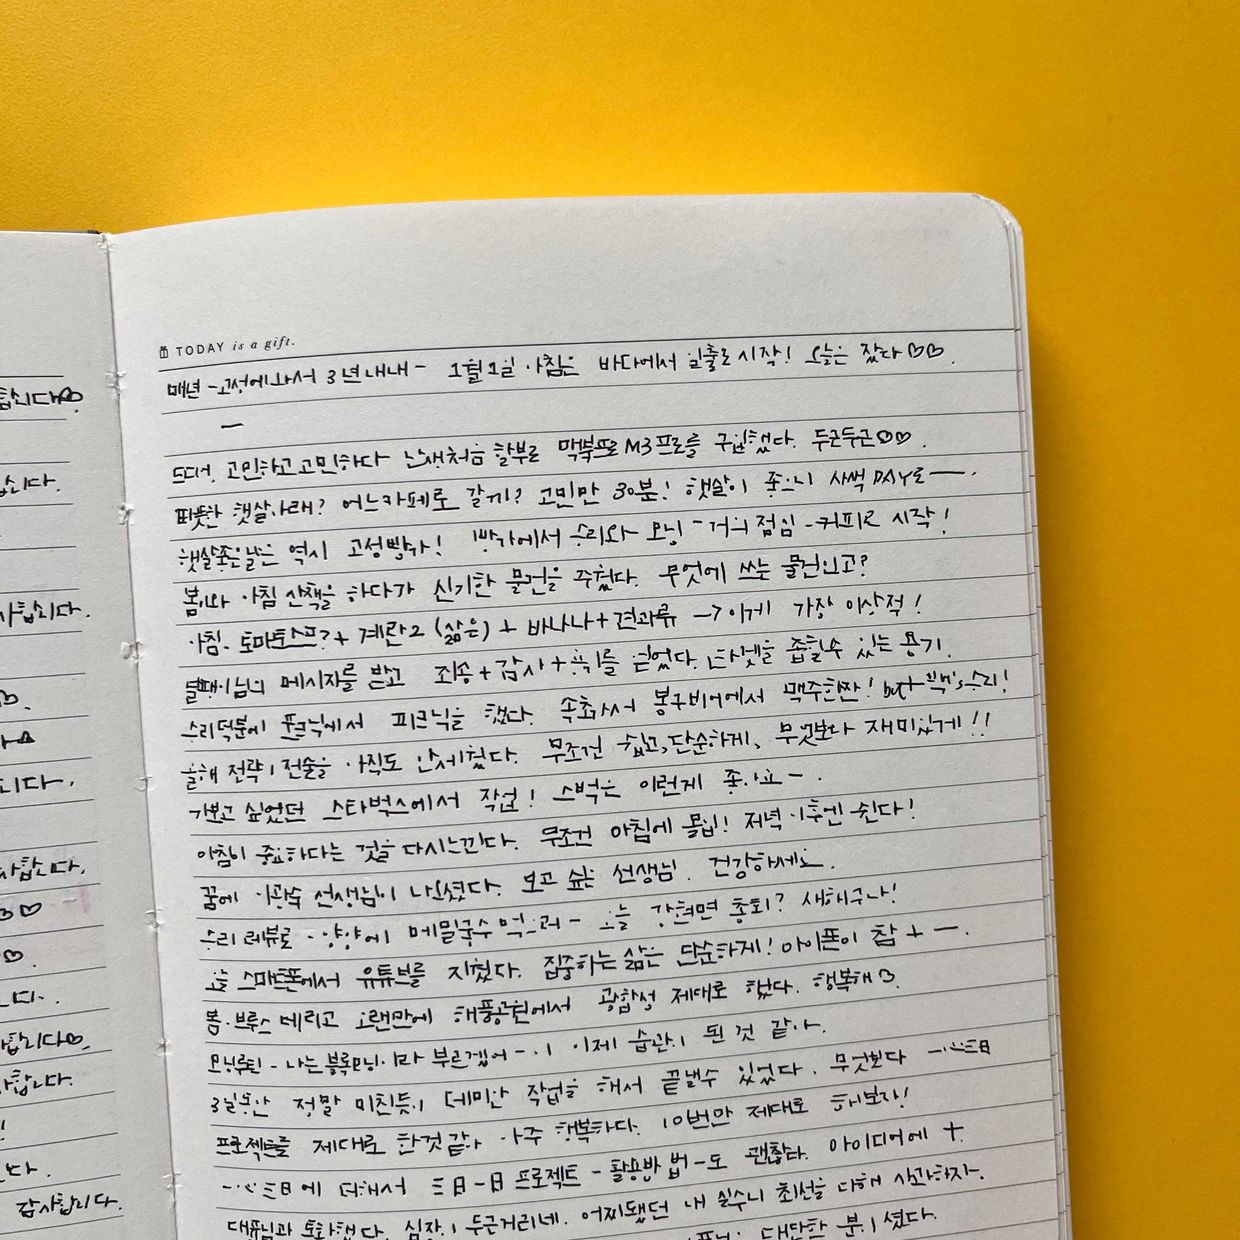 TODAY is a gift.
매년 고성에와서 3년내내 - 1월1일 아침은 바다에서 일출로 시작! 오늘은 잤다♡♡.
드디어, 고민하고고민하다 난생처음 할부로 맥북프로M3프로를 구입했다. 두근두근♡♡.
따뜻한 햇살아래? 어느카페로 갈까? 고민만 30분! 햇살이 좋으니 사색 DAY로 —.
햇살좋은날은 역시 고성빵가! 빵가에서 수리와 모닝 커피로 시작!
봄이와 아침산책을 하다가 신기한 물건을 주웠다. 무엇에 쓰는 물건인고?
아침. 토마토스프?+ 계란2 (삶은) + 바나나+견과류 → 이게 가장 이상적!
메시지를 받고 죄송+감사+용기를 얻었다. 있는 용기.
수리덕분에 피크닉을 했다. 속초가서 봉구비어에서 맥주한잔! but
올해 전략, 전술을 아직도 안세웠다. 무조건 쉽고, 단순하게, 무엇보다 재미있게!!
가보고 싶었던 스타벅스에서 작업! 스벅은 이런게 좋아요 -.
아침이 중요하다는 것을 다시느낀다. 무조건 아침에 몰입! 저녁 이후엔 쉰다!
꿈에 이관숙 선생님이 나오셨다. 보고 싶은 선생님. 건강하세요.
수리 레뷰로 - 양양에 메밀국수 먹으러 - 오늘 강현면 총회? 새해구나!
오늘 스마트폰에서 유튜브를 지웠다. 집중하는 삶은 단순하게! 아이폰이 참 + -.
봄·브루스 데리고 오랜만에 해풍공원에서 광합성 제대로 했다. 행복해♡.
모닝루틴 - 나는 블록모닝이라 부르겠어 - . 이제 습관이 된 것 같아.
3일동안 정말 미친듯이 데미안 작업을 해서 끝낼수 있었다. 무엇보다
프로젝트를 제대로 한것같아 아주 행복하다. 10번만 제대로 해보자!
에 더해서 三日一日 프로젝트 - 활용방법 - 도 괜찮다. 아이디어에 +
대표님과 통화했다. 심장이 두근거리네. 어찌됐던 내 실수니 최선을 다해 사과하자.
대단한 분이셨다.
니다.
니다.
감사합니다.